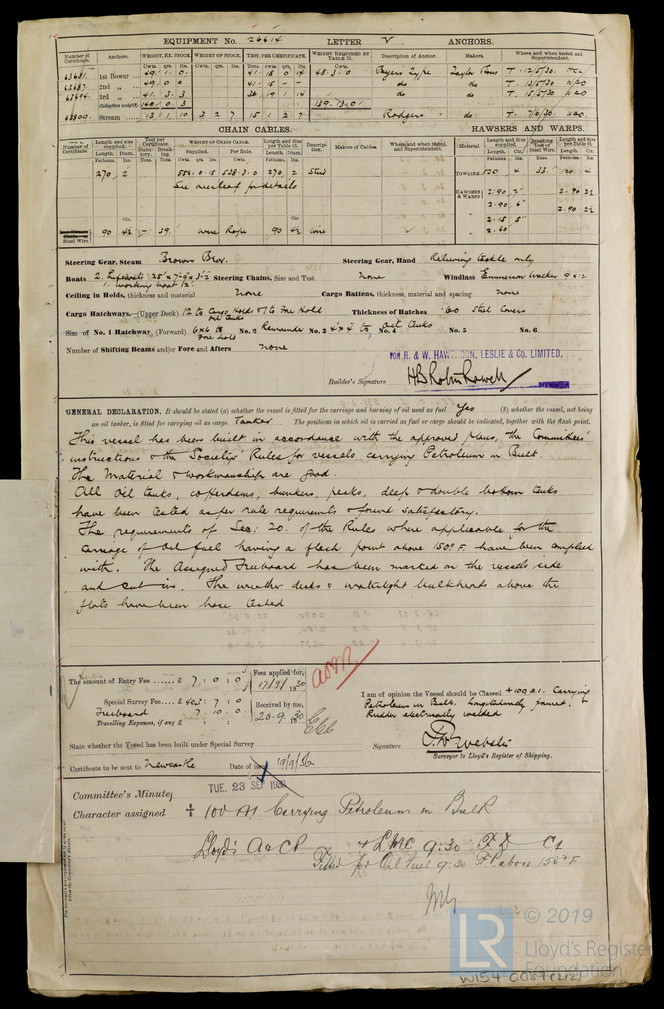 EQUIPMENT No. 26614 LETTER V ANCHORS.
Number of Certificate. Anchors. WEIGHT, EX. STOCK. WEIGHT OF STOCK. TEST, PER CERTIFICATE. WEIGHT REQUIRED BY TABLE 22. Description of Anchor. Makers. Where and when tested and Superintendent.
Cwts. qrs. lbs. Cwts. qrs. lbs. Tons. cwts. qrs. lbs. Cwts.
63681. 1st Bower ... 49. 1. 0. 41. 18 0 14 48. 3. 0 Byers Type Taylor & Sons T. 12/5/30.
63687. 2nd „ ... 49. 0 0 41. 15 - - do do T. 13/5/30 WRO
63694. 3rd „ ... 41. 3. 3 36. 19 1 14 do do T. 15/5/30 WRO
Collective weight. 140. 0. 3 139. 73. 0.
63809. Stream ... 13 1 10 3 2 7 15 1 2 7 Rodgers do T. 7/6/30 WRO
CHAIN CABLES. HAWSERS AND WARPS.
Number of Certificate. Length and size supplied. Test per Certificate. WEIGHT OF CHAIN CABLE. Length and Size per Table 22. Description. Makers of Cables. Where and when tested, and Superintendent. Material Length and Size supplied. Breaking Test of Steel Wire. Length and Size per Table 22.
270 2 556. 0. 15 538. 3. 0 270 2 Stud TOWLINE 120 4 33 120 4
See overleaf for details HAWSERS & WARPS 2. 90 7" 2. 90 2½
2. 90 6" 2. 90 2½
2. 15 5"
90 4½ - 39. wire Rope 90 4½ wire 2. 60
Steel Wire
Steering Gear, Steam Brown Bros. Steering Gear, Hand Relieving tackle only
Boats 2. Lifeboats 25' x 7'-9" x 3'-2 Steering Chains, Size and Test None Windlass Emmerson Walker 9 x 12
1. working boat 12'
Ceiling in Holds, thickness and material None Cargo Battens, thickness, material and spacing none
Cargo Hatchways.—(Upper Deck) 12 to Cargo Holds & 1 to Fore Hold Thickness of Hatches .60 Steel Covers
oil tanks
Size of No. 1 Hatchway (Forward) 6x6 to fore hold No. 2 Remainder No. 3 4'x4' to No. 4 oil tanks No. 5 No. 6
Number of Shifting Beams and/or Fore and Afters none
FOR R. & W. HAWTHORN, LESLIE & Co. LIMITED.
Builder's Signature HB Robin Rowell
GENERAL DECLARATION. It should be stated (a) whether the vessel is fitted for the carriage and burning of oil used as fuel Yes (b) whether the vessel, not being
an oil tanker, is fitted for carrying oil as cargo Tanker. The positions in which oil is carried as fuel or cargo should be indicated, together with the flash point.
This vessel has been built in accordance with the approved plans, the Committees'
instructions & the Societys' Rules for vessels carrying Petroleum in Bulk.
The Material & workmanship are good.
All oil tanks, cofferdams, bunkers, peaks, deep & double bottom tanks
have been tested as per rule requirements & found satisfactory.
The requirements of Sec: 20. of the Rules where applicable for the
carriage of oil fuel having a flash point above 150° F. have been complied
with. The Assigned Freeboard has been marked on the vessels side
and cut in. The weather decks & watertight bulkheads above the
flats have been hose tested
The amount of Entry Fee ...... £ 7 : 0 : 0 Fees applied for,
17/9/1930
Special Survey Fee ..... £ 403 : 7 : 0 Received by me,
Freeboard 7 . 10 . 0 20.9.1930
Travelling Expenses, if any £ : :
I am of opinion the Vessel should be Classed + 100 A.1. Carrying
Petroleum in Bulk. Longitudinally framed. &
Rudder electrically welded
State whether the Vessel has been built under Special Survey
Signature Webster
Surveyor to Lloyd's Register of Shipping.
Certificate to be sent to Newcastle Date of issue 19/9/30
Committee's Minute TUE. 23 SEP 1930
Character assigned + 100 A1 Carrying Petroleum in Bulk
Lloyd's A & CP + LMC 9:30 F.D CL
Fitted for Oil Fuel 9.30 F.P. above 150° F.
© 2019
LR Lloyd's Register
Foundation
W154-0089(2/2)